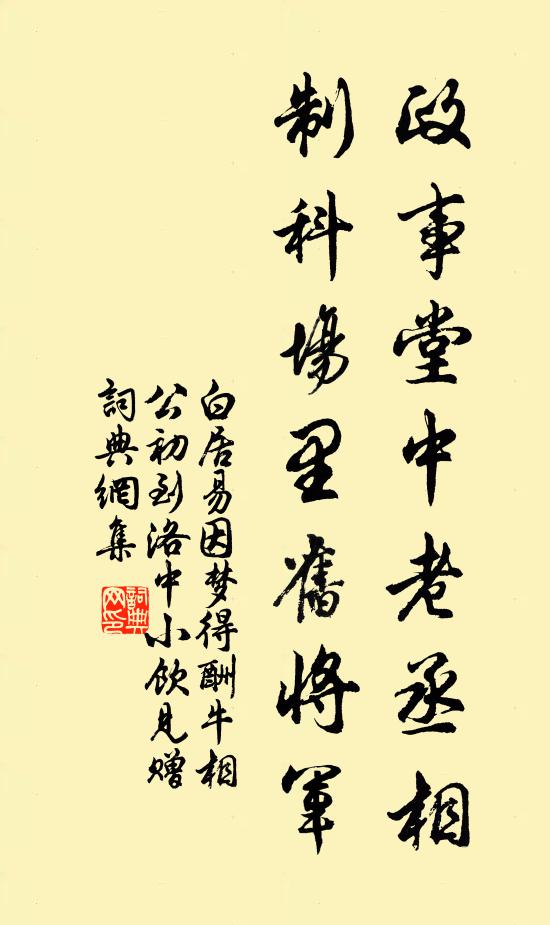 政事堂中老丞相
制科場里舊將軍
白居易因梦得酬牛相
公初到洛中小飲見贈
詞典網集
詞典网印